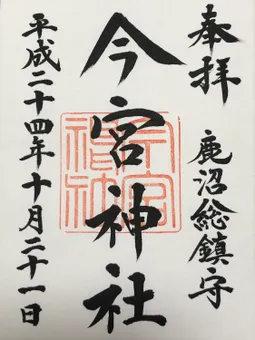 奉拝
鹿沼総鎮守
今宮神社
今宮神社
平成二十四年十月二十一日